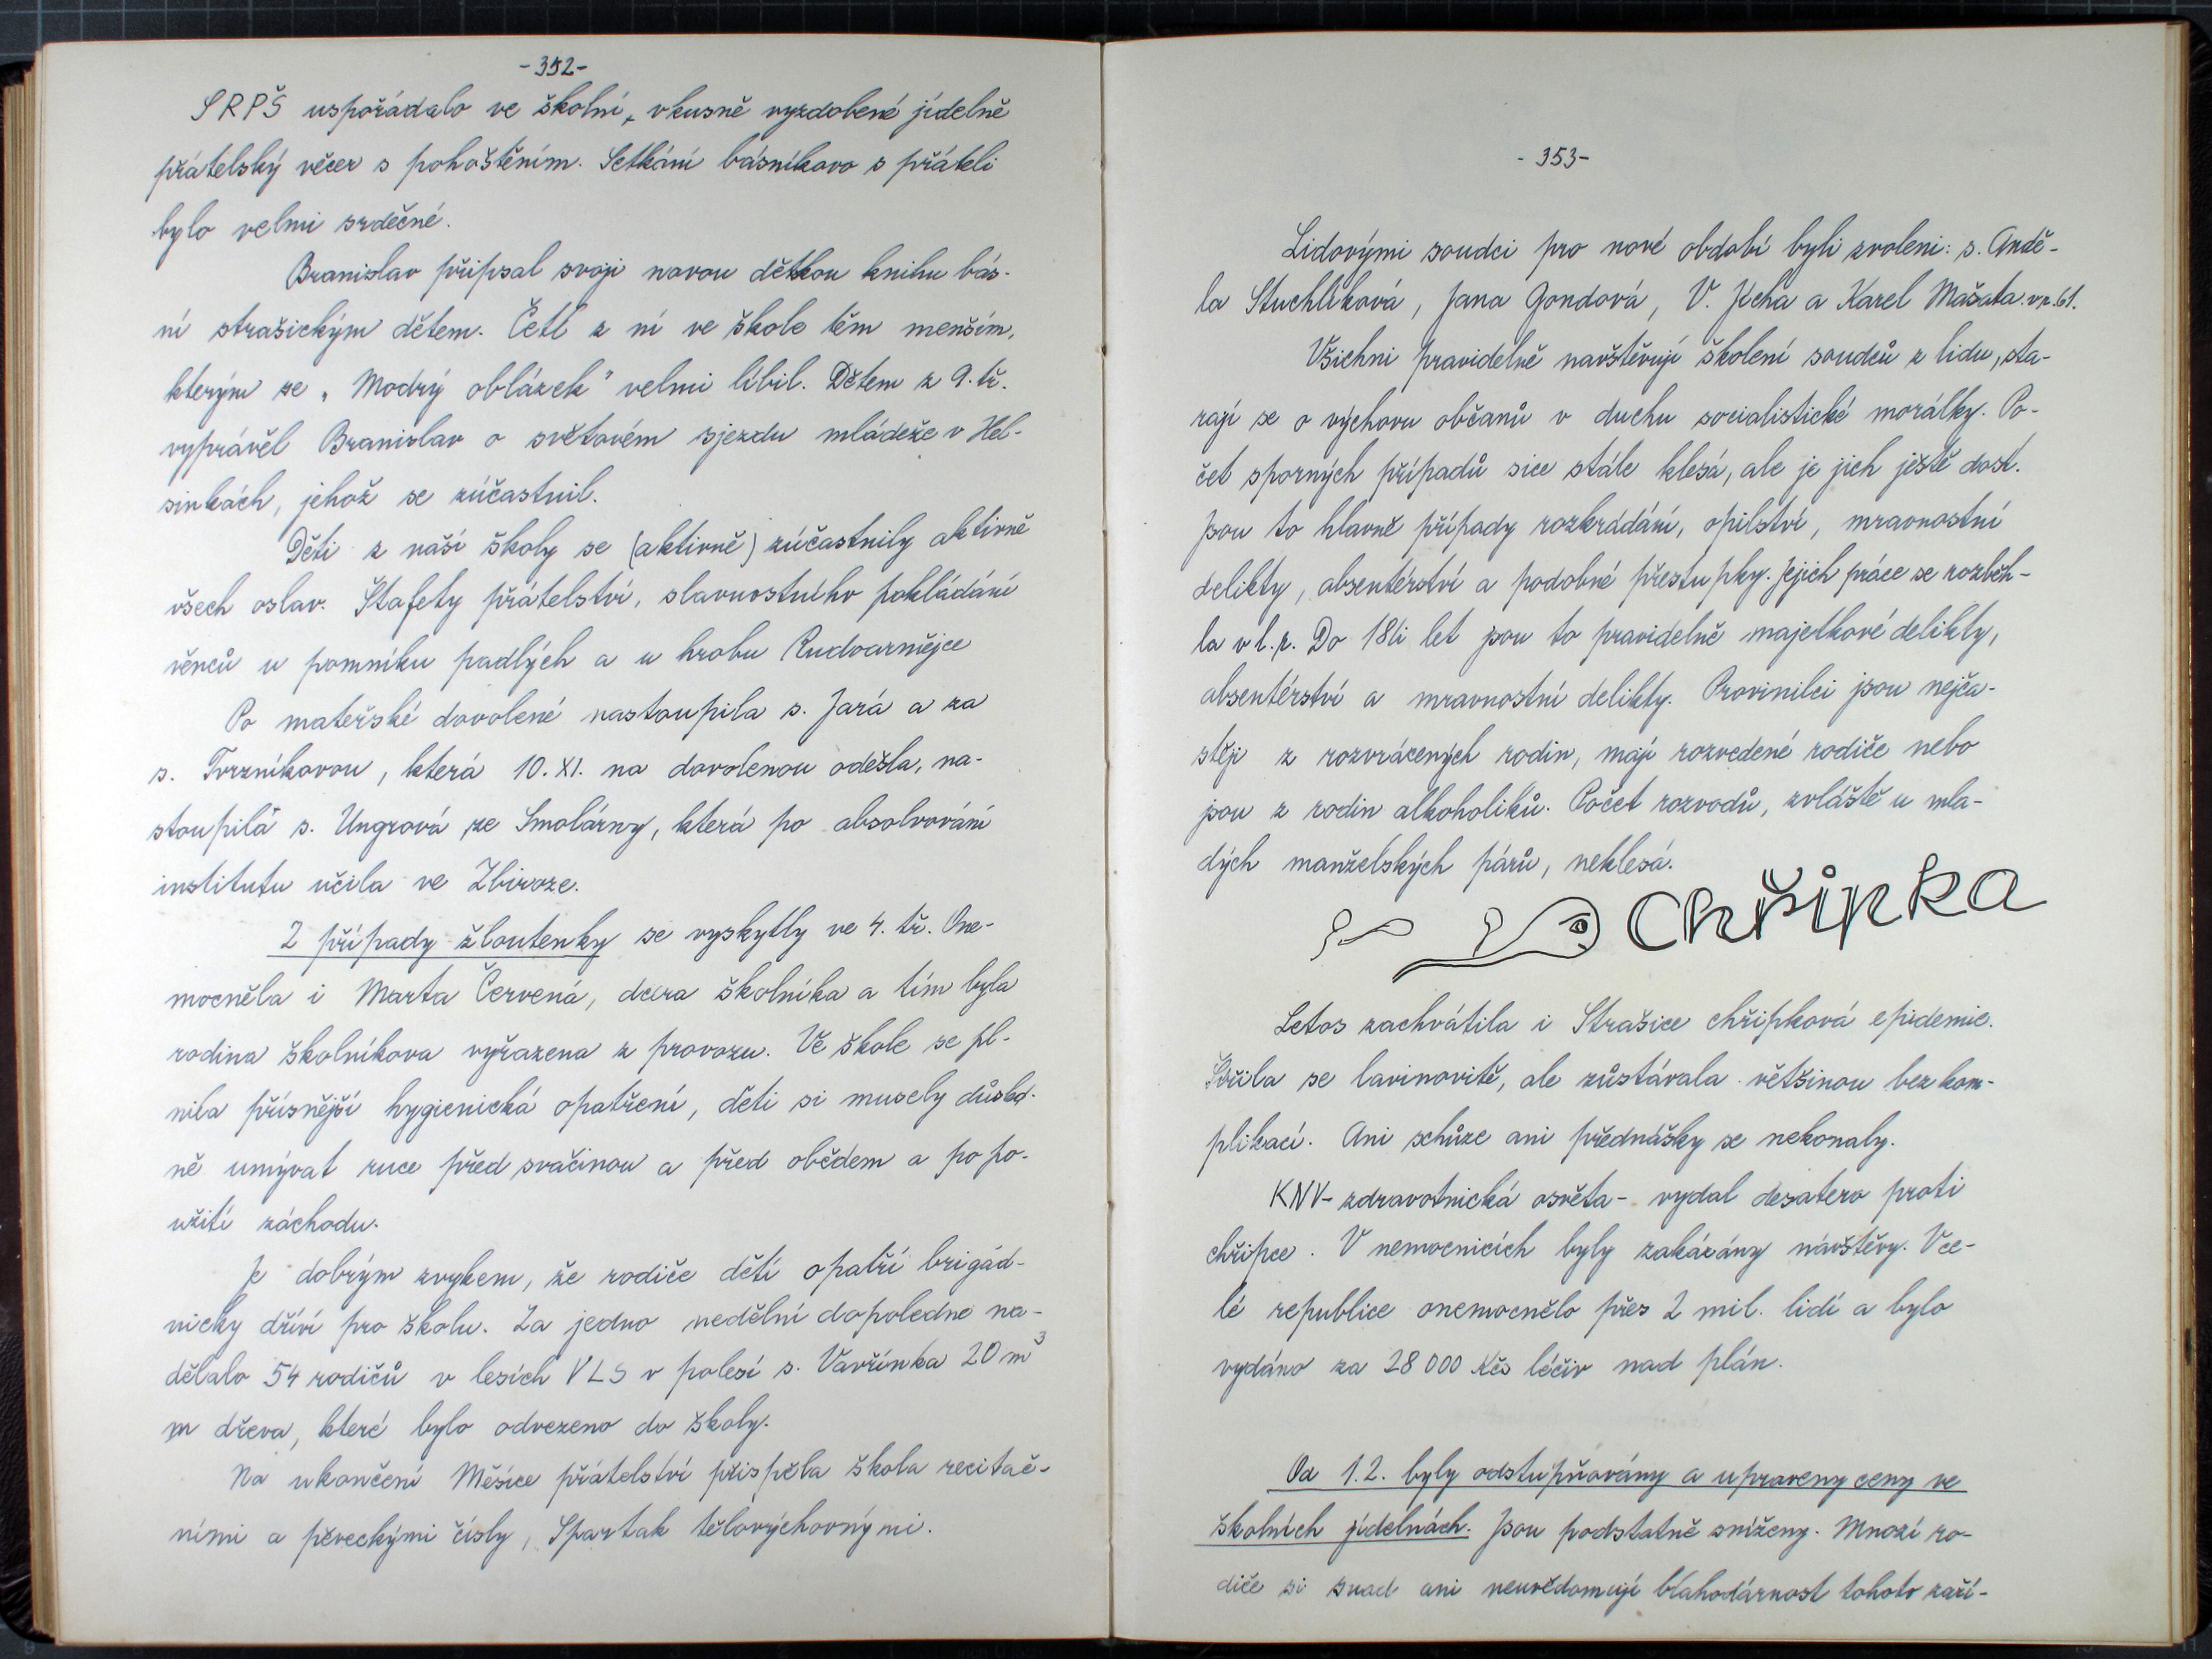 -352-
SRPŠ uspořádalo ve školní, vkusně vyzdobené jídelně
přátelský večer s pohoštěním. Setkání básníkovo s přáteli
bylo velmi srdečné.
Branislav připsal svoji novou dětskou knihu bás-
ní strašickým dětem. Četl z ní ve škole těm menším,
kterým se „Modrý oblázek" velmi líbil. Dětem z 9. tř.
vyprávěl Branislav o světovém sjezdu mládeže v Hel-
sinkách, jehož se zúčastnil.
Děti z naší školy se (aktivně) zúčastnily aktivně
všech oslav. Štafety přátelství, slavnostního pokládání
věnců u pomníku padlých a u hrobu Rudoarmějce
Po mateřské dovolené nastoupila s. Jará a za
s. Tvrzníkovou, která 10. XI. na dovolenou odešla, na-
stoupila s. Ungrová ze Smolárny, která po absolvování
institutu učila ve Zbiroze.
2 případy žloutenky se vyskytly ve 4. tř. One-
mocněla i Marta Červená, dcera školníka a tím byla
rodina školníkova vyřazena z provozu. Ve škole se pl-
nila přísnější hygienická opatření, děti si musely důklad-
ně umývat ruce před svačinou a před obědem a po po-
užití záchodu.
Je dobrým zvykem, že rodiče dětí opatří brigád-
nicky dříví pro školu. Za jedno nedělní dopoledne na-
dělalo 54 rodičů v lesích VLS v polesí s. Vavřínka 20 m³
m dřeva, které bylo odvezeno do školy.
Na ukončení Měsíce přátelství přispěla škola recitač-
ními a pěveckými čísly, Spartak tělovýchovnými.
-353-
Lidovými soudci pro nové období byli zvoleni: s. Andě-
la Stuchlíková, Jana Gondová, V. Jícha a Karel Mašata. v r. 61.
Všichni pravidelně navštěvují školení soudců z lidu, sta-
rají se o výchovu občanů v duchu socialistické morálky. Po-
čet sporných případů sice stále klesá, ale je jich ještě dost.
Jsou to hlavně případy rozkrádání, opilství, mravnostní
delikty, absentérství a podobné přestupky. Jejich práce se rozběh-
la v l. r. Do 18ti let jsou to pravidelně majetkové delikty,
absentérství a mravnostní delikty. Provinilci jsou nejča-
stěji z rozvrácených rodin, mají rozvedené rodiče nebo
jsou z rodin alkoholiků. Počet rozvodů, zvláště u mla-
dých manželských párů, neklesá.
Chřipka
Letos zachvátila i Strašice chřipková epidemie.
Šířila se lavinovitě, ale zůstávala většinou bez kom-
plikací. Ani schůze ani přednášky se nekonaly.
KNV- zdravotnická osvěta- vydal desatero proti
chřipce. V nemocnicích byly zakázány návštěvy. V ce-
lé republice onemocnělo přes 2 mil. lidí a bylo
vydáno za 28 000 Kčs léčiv nad plán.
Od 1.2. byly odstupňovány a upraveny ceny ve
školních jídelnách. Jsou podstatně sníženy. Mnozí ro-
diče si snad ani neuvědomují blahodárnost tohoto zaří-